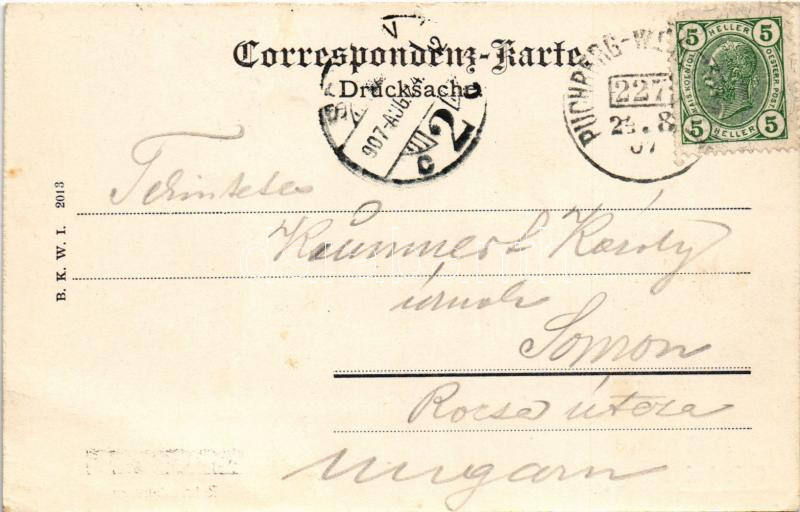 Correspondenz-Karte
Drucksache
907-AUG.
2
C
PUCHBERG-W
227
23.8
07
5 HELLER 5
OESTERR. POST
5 HELLER 5
B. K. W. I. 2013
Tekintetes
Kummert Károly
úrnak
Sopron
utcza
Ungarn